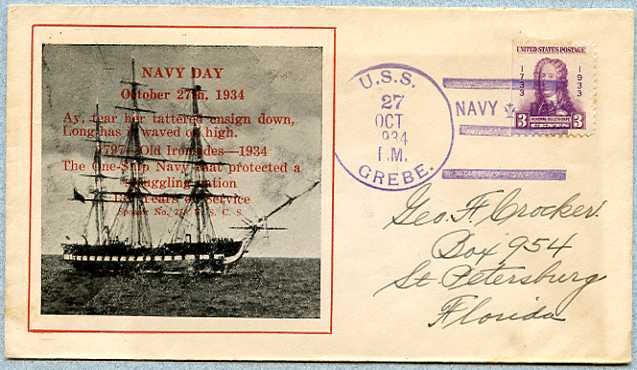 NAVY DAY
October 27th, 1934
Ay, tear her tattered ensign down,
Long has it waved on high.
1797—Old Ironsides—1934
The One-Ship Navy that protected a
struggling nation
Years of Service
Sponsor No. S. C. S.
U.S.S.
27
OCT
1934
P.M.
GREBE.
NAVY
UNITED STATES POSTAGE
1733
1933
3 CENTS 3
Geo. F. Crocker.
Box 954
St Petersburg
Florida